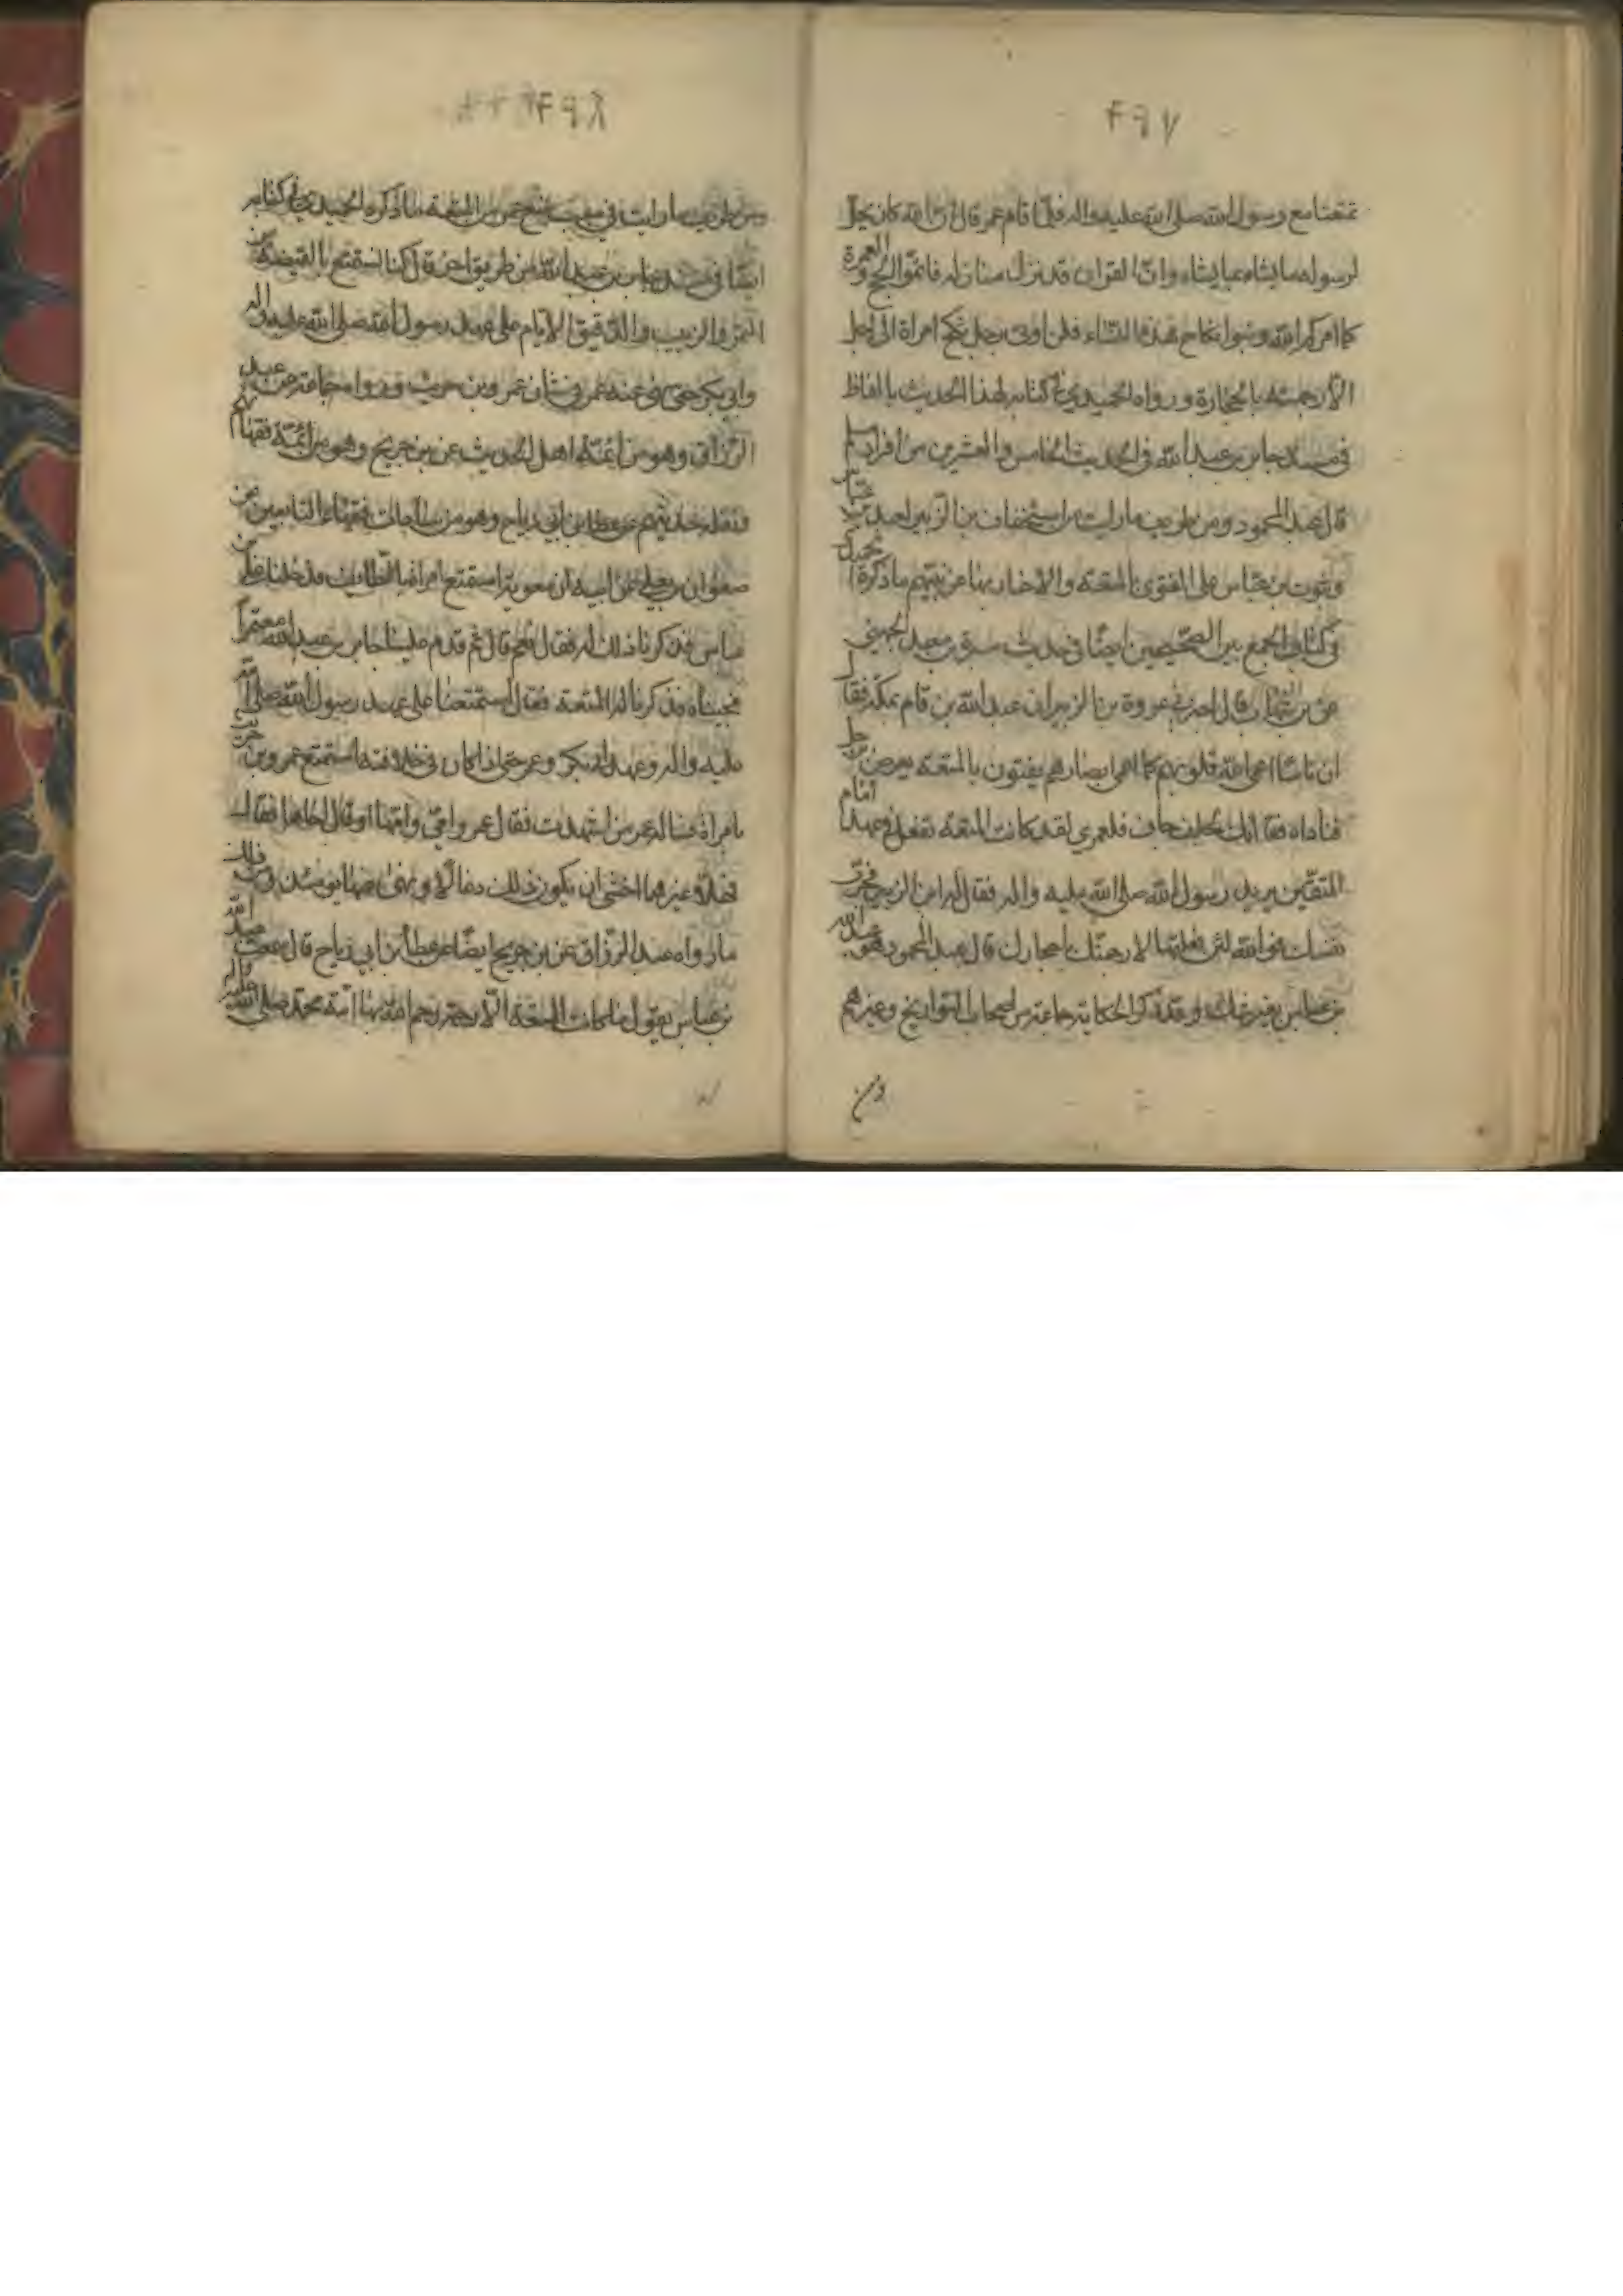 ۴۹۷
تمتعنا مع رسول الله صلى الله عليه واله فلما قام عمر قال ان الله كان يحل
لرسوله ما يشاء بما يشاء وان القران قد نزل منازله فاتموا الحج والعمرة
كما امركم الله وبتوا نكاح هذه النساء فلن اوتى برجل نكح امراة الى اجل
الا رجمته بالحجارة ورواه الحميدي في كتابه لهذا الحديث بالفاظ
في مسند جابر بن عبد الله في الحديث الخامس والعشرين من افراد مسلم
قال عبد المحمود ومن طريف ما رايت من استخفاف بن الزبير لعبد الله بن عباس
وثبوت بن عباس على الفتوى بالمتعة والاخبار بها عن نبيهم ما ذكره الحميدي
في كتاب الجمع بين الصحيحين ايضا في حديث سبرة بن معبد الجهني
عن بن شهاب قال اخبرني عروة بن الزبير ان عبد الله بن قام بمكة فقال
ان ناسا اعمى الله قلوبهم كما اعمى ابصارهم يفتون بالمتعة يعرض برجل
فناداه فقال انك لجلف جاف فلعمري لقد كانت المتعة تفعل في عهد امام
المتقين يريد رسول الله صلى الله عليه واله فقال له ابن الزبير فجرب
نفسك فوالله لئن فعلتها لارجمنك باحجارك قال عبد المحمود هو عبد الله
بن عباس بغير شك وقد ذكر الحكاية جماعة من اصحاب التواريخ وغيرهم
ومن
۴۹۸
ومن طريف ما رايت في منع عمر من المتعة ما ذكره الحميدي في كتابه
ايضا في مسند جابر بن عبد الله من طريق اخر قال كنا نستمتع بالقبضة من
التمر والزبيب والدقيق الايام على عهد رسول الله صلى الله عليه واله
وابي بكر حتى نهى عنه عمر في شان عمرو بن حريث ورواه جماعة عن عبد
الرزاق وهو من ائمة اهل الحديث عن بن جريح وهو من ائمة فقهائهم
ونقلة حديثهم عن عطا بن ابي رباح وهو من فقهاء التابعين عن
صفوان بن يعلى عن ابيه ان معوية استمتع امراة بالطايف فدخلنا على بن
عباس فذكرنا ذلك له فقال نعم قال ثم قدم علينا جابر بن عبد الله معتمرا
فجيناه فذكرنا له المتعة فقال استمتعنا على عهد رسول الله صلى الله
عليه واله وعهد ابي بكر وعمر حتى اذا كان في خلافته استمتع عمرو بن حريث
بامراة فساله عمر من اشهدت فقال عمرو امي وامها او قال اخاها فقال
فهلا غيرهما اخشى ان يكون ذلك دغالا ونهى عنها يومئذ ومن ذلك
ما رواه عبد الرزاق عن بن جريح ايضا عن عطا بن ابي رباح قال سمعت عبد الله
بن عباس يقول ما كانت المتعة الا رحمة رحم الله بها امة محمد صلى الله عليه واله